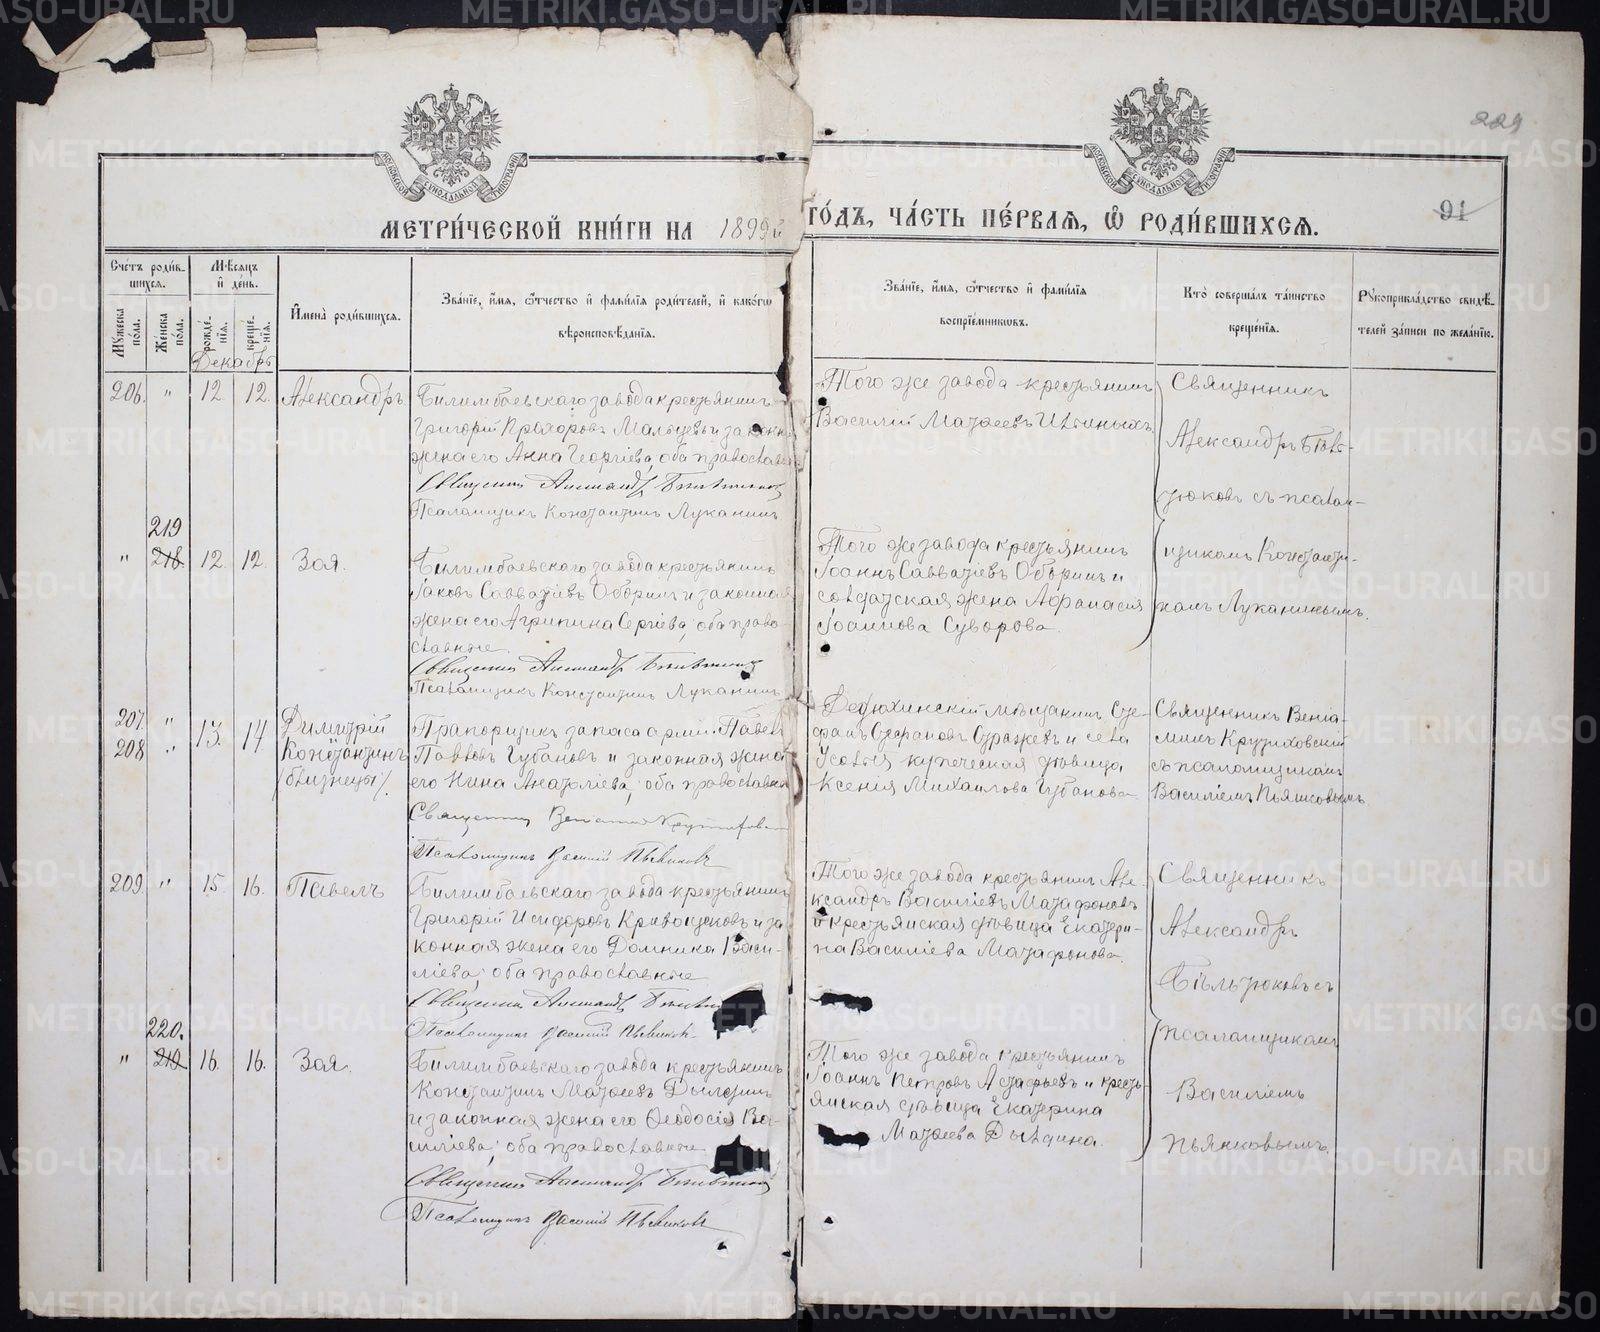 229
91
МОСКОВСКОЙ СУНОДАЛЬНОЙ ТИПОГРАФІИ
МОСКОВСКОЙ СУНОДАЛЬНОЙ ТИПОГРАФІИ
МЕТРИ́ЧЕСКОЙ КНИ́ГИ НА 1899й ГО́ДЪ, ЧА́СТЬ ПЕ́РВАѦ, Ѡ҆ РОДИ́ВШИХСѦ.
Сче́тъ роди́в-
шихсѧ.
Мꙋ́жеска по́ла.
Же́нска по́ла.
Мѣ́сѧцъ и҆ де́нь.
рожде́-
нїѧ.
креще́-
нїѧ.
Декабрь
И҆мена̀ роди́вшихсѧ.
Зва́нїе, и҆́мѧ, ѻ҆́тчество и҆ фами́лїѧ роди́телей, и҆ како́гѡ
вѣроисповѣ́данїѧ.
Зва́нїе, и҆́мѧ, ѻ҆́тчество и҆ фами́лїѧ
воспрїе́мникѡвъ.
Кто̀ соверша́лъ та́инство
креще́нїѧ.
Рꙋкоприкла́дство свидѣ́-
телей за́писи по жела́нїю.
206. " 12. 12. Александръ
Билимбаевскаго завода крестьянинъ
Григорій Прохоровъ Мальцевъ и законн
жена его Анна Георгіева, оба православн
Священникъ Александръ
Псаломщикъ Константинъ Луканинъ
Того же завода крестьянинъ
Василій Матѳеевъ
Священникъ
Александръ Бѣль-
тюковъ съ псалом-
щикомъ Константи-
номъ Луканинымъ.
219
" 218 12. 12. Зоя.
Билимбаевскаго завода крестьянинъ
Іаковъ Савватіевъ Оборинъ и законная
жена его Агрипина Сергіева, оба право-
славные.
Священникъ Александръ
Псаломщикъ Константинъ Луканинъ
Того же завода крестьянинъ
Іоаннъ Савватіевъ Оборинъ и
солдатская жена Афанасія
Іоаннова Суворова.
207. "
208. " 13. 14
Димитрій
Константинъ
/близнецы/.
Прапорщикъ запаса арміи Павелъ
Павловъ Губановъ и законная жена
его Нина Анатоліева, оба православн
Священникъ Веніаминъ
Псаломщикъ Василій Пьянковъ
мѣщанинъ Сте-
фанъ Стефановъ и села
Усолья купеческая дѣвица
Ксенія Михаилова Губанова.
Священникъ Веніа-
минъ
съ псаломщикомъ
Василіемъ Пьянковымъ.
209. " 15. 16. Павелъ
Билимбаевскаго завода крестьянинъ
Григорій Исидоровъ Кривощековъ и за-
конная жена его Домника Васи-
ліева; оба православные
Священникъ Александръ
Псаломщикъ Василій Пьянковъ.
Того же завода крестьянинъ Але-
ксандръ Василіевъ Матафоновъ
и крестьянская дѣвица Екатери-
на Василіева Матафонова.
Священникъ
Александръ
Бѣльтюковъ съ
псаломщикомъ
Василіемъ
Пьянковымъ.
220.
" 219 16. 16. Зоя.
Билимбаевскаго завода крестьянинъ
Константинъ Матѳеевъ Дылдинъ
и законная жена его Ѳеодосія Ва-
силіева; оба православные
Священникъ Александръ
Псаломщикъ Василій Пьянковъ
Того же завода крестьянинъ
Іоаннъ Петровъ Астафьевъ и кресть-
янская дѣвица Екатерина
Матѳеева Дылдина.
METRIKI.GASO-URAL.RU